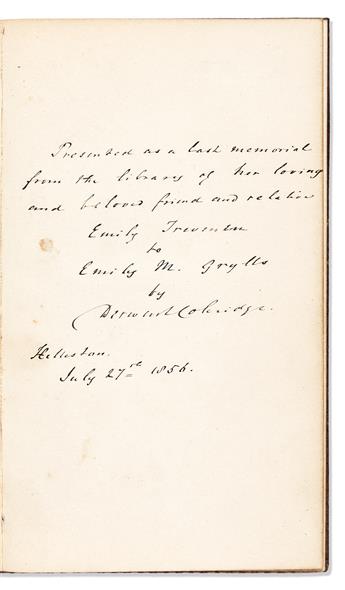 Presented as a last memorial
from the library of her loving
and beloved friend and relative
Emily Trevenen
to
Emily M. Grylls
by
Derwent Coleridge.
Helleston.
July 27th 1856.